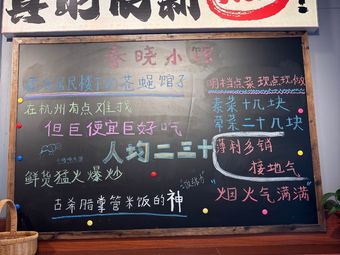 真的很新
春晓小馆
居民楼下的苍蝇馆子
在杭州有点难找
但巨便宜巨好吃
人均二三十
鲜货猛火爆炒
古希腊掌管米饭的神
明档点菜现点现做
素菜十几块
荤菜二十几块
薄利多销
接地气
"烟火气满满"